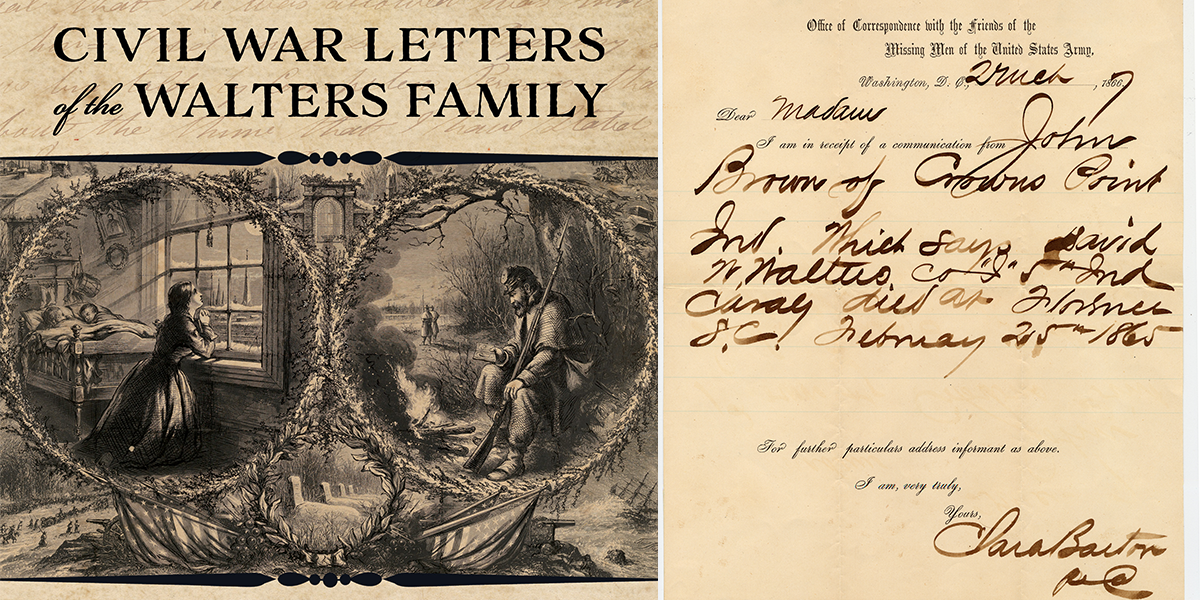 CIVIL WAR LETTERS
of the WALTERS FAMILY
Office of Correspondence with the Friends of the
Missing Men of the United States Army,
Washington, D. C., Mch, 1867
Dear Madam
I am in receipt of a communication from John
Brown of Crowns Point
Ind. Which says David
W. Walters, Co "I" 5th Ind
Cavaly died at Florence
S.C. February 25th 1865
For further particulars address informant as above.
I am, very truly,
Yours,
Clara Barton